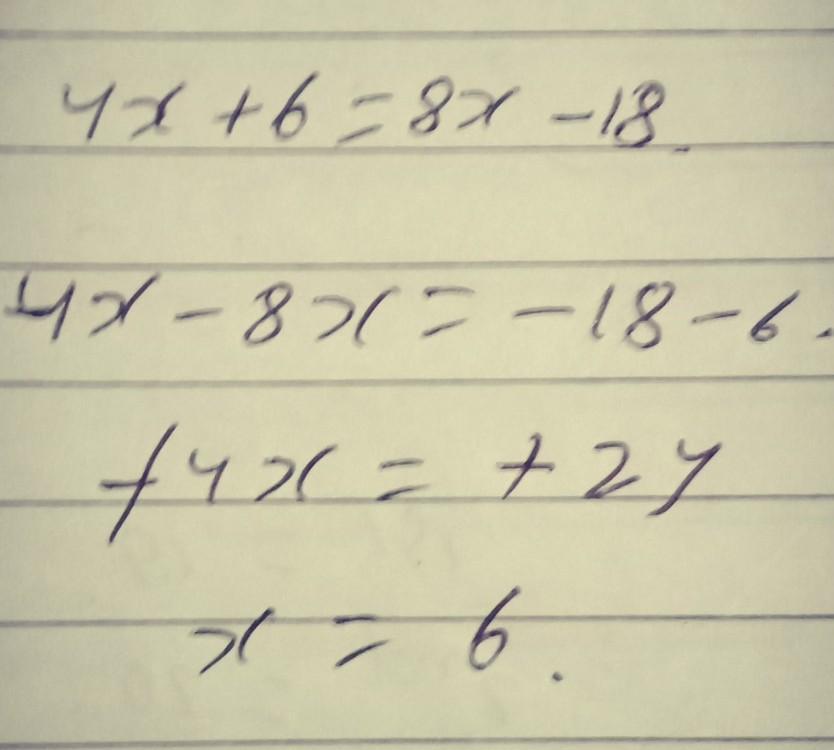 4x + 6 = 8x - 18.
4x - 8x = - 18 - 6.
+ 4x = + 24
x = 6.